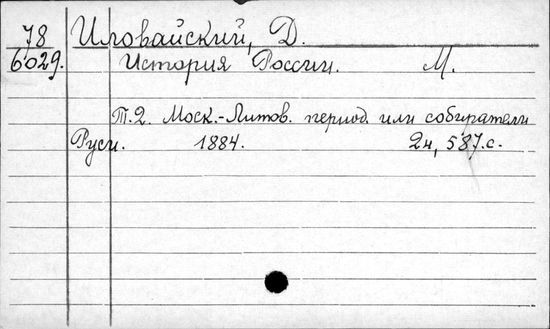 78 Иловайский, Д.
6029. История России. М.
Т.2. Моск.-Литов. период. или собиратели
Руси. 1884. 2н, 587.с.